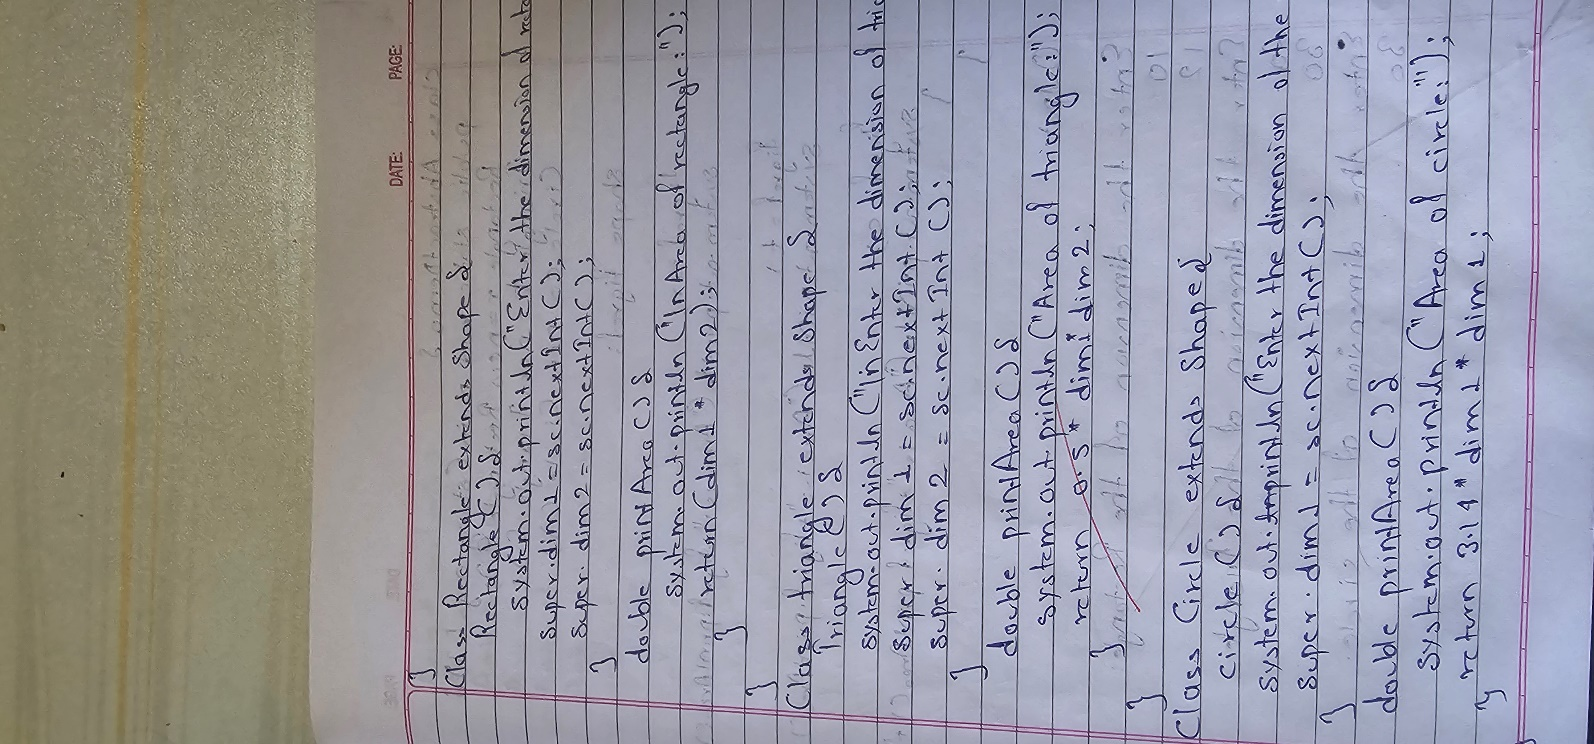 DATE: PAGE:
}
Class Rectangle extends Shape {
Rectangle () {
System.out.println("Enter the dimension of
super.dim1 = sc.nextInt();
super.dim2 = sc.nextInt();
}
double printArea () {
System.out.println ("\nArea of rectangle:");
return (dim1 * dim2);
}
}
Class triangle extends Shape {
Triangle () {
System.out.println ("\nEnter the dimension of
Super. dim 1 = sc.nextInt ();
super. dim 2 = sc.next Int ();
}
double printArea () {
System.out.println ("Area of triangle:");
return 0.5 * dim1 dim2;
}
}
Class Circle extends Shape {
circle () {
System.out.println ("Enter the dimension of the
super. dim1 = sc.nextInt ();
}
double printArea () {
System.out.println ("Area of circle:");
return 3.14 * dim1 * dim1;
}